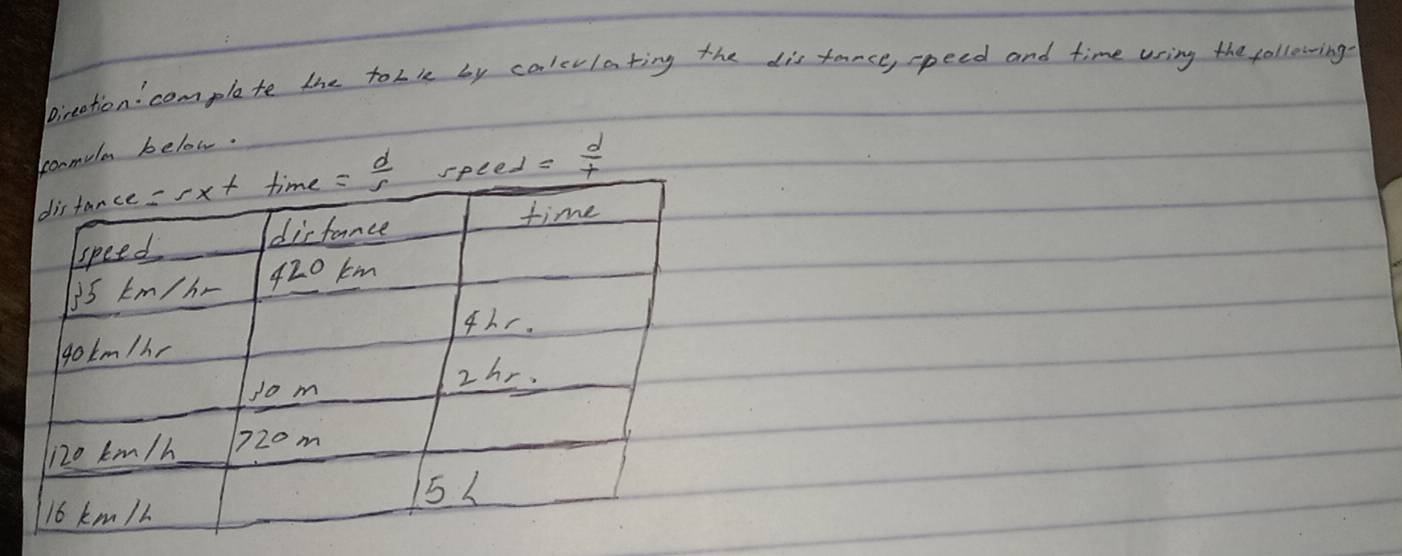 Direction: complete the table by calculating the distance, speed and time using the following
formula below.
distance = s x t time = d/s speed = d/t
speed distance time
35 km/hr 420 km
40 km/hr 4 hr.
30 m 2 hr.
120 km/h 720 m
16 km/h 5 h